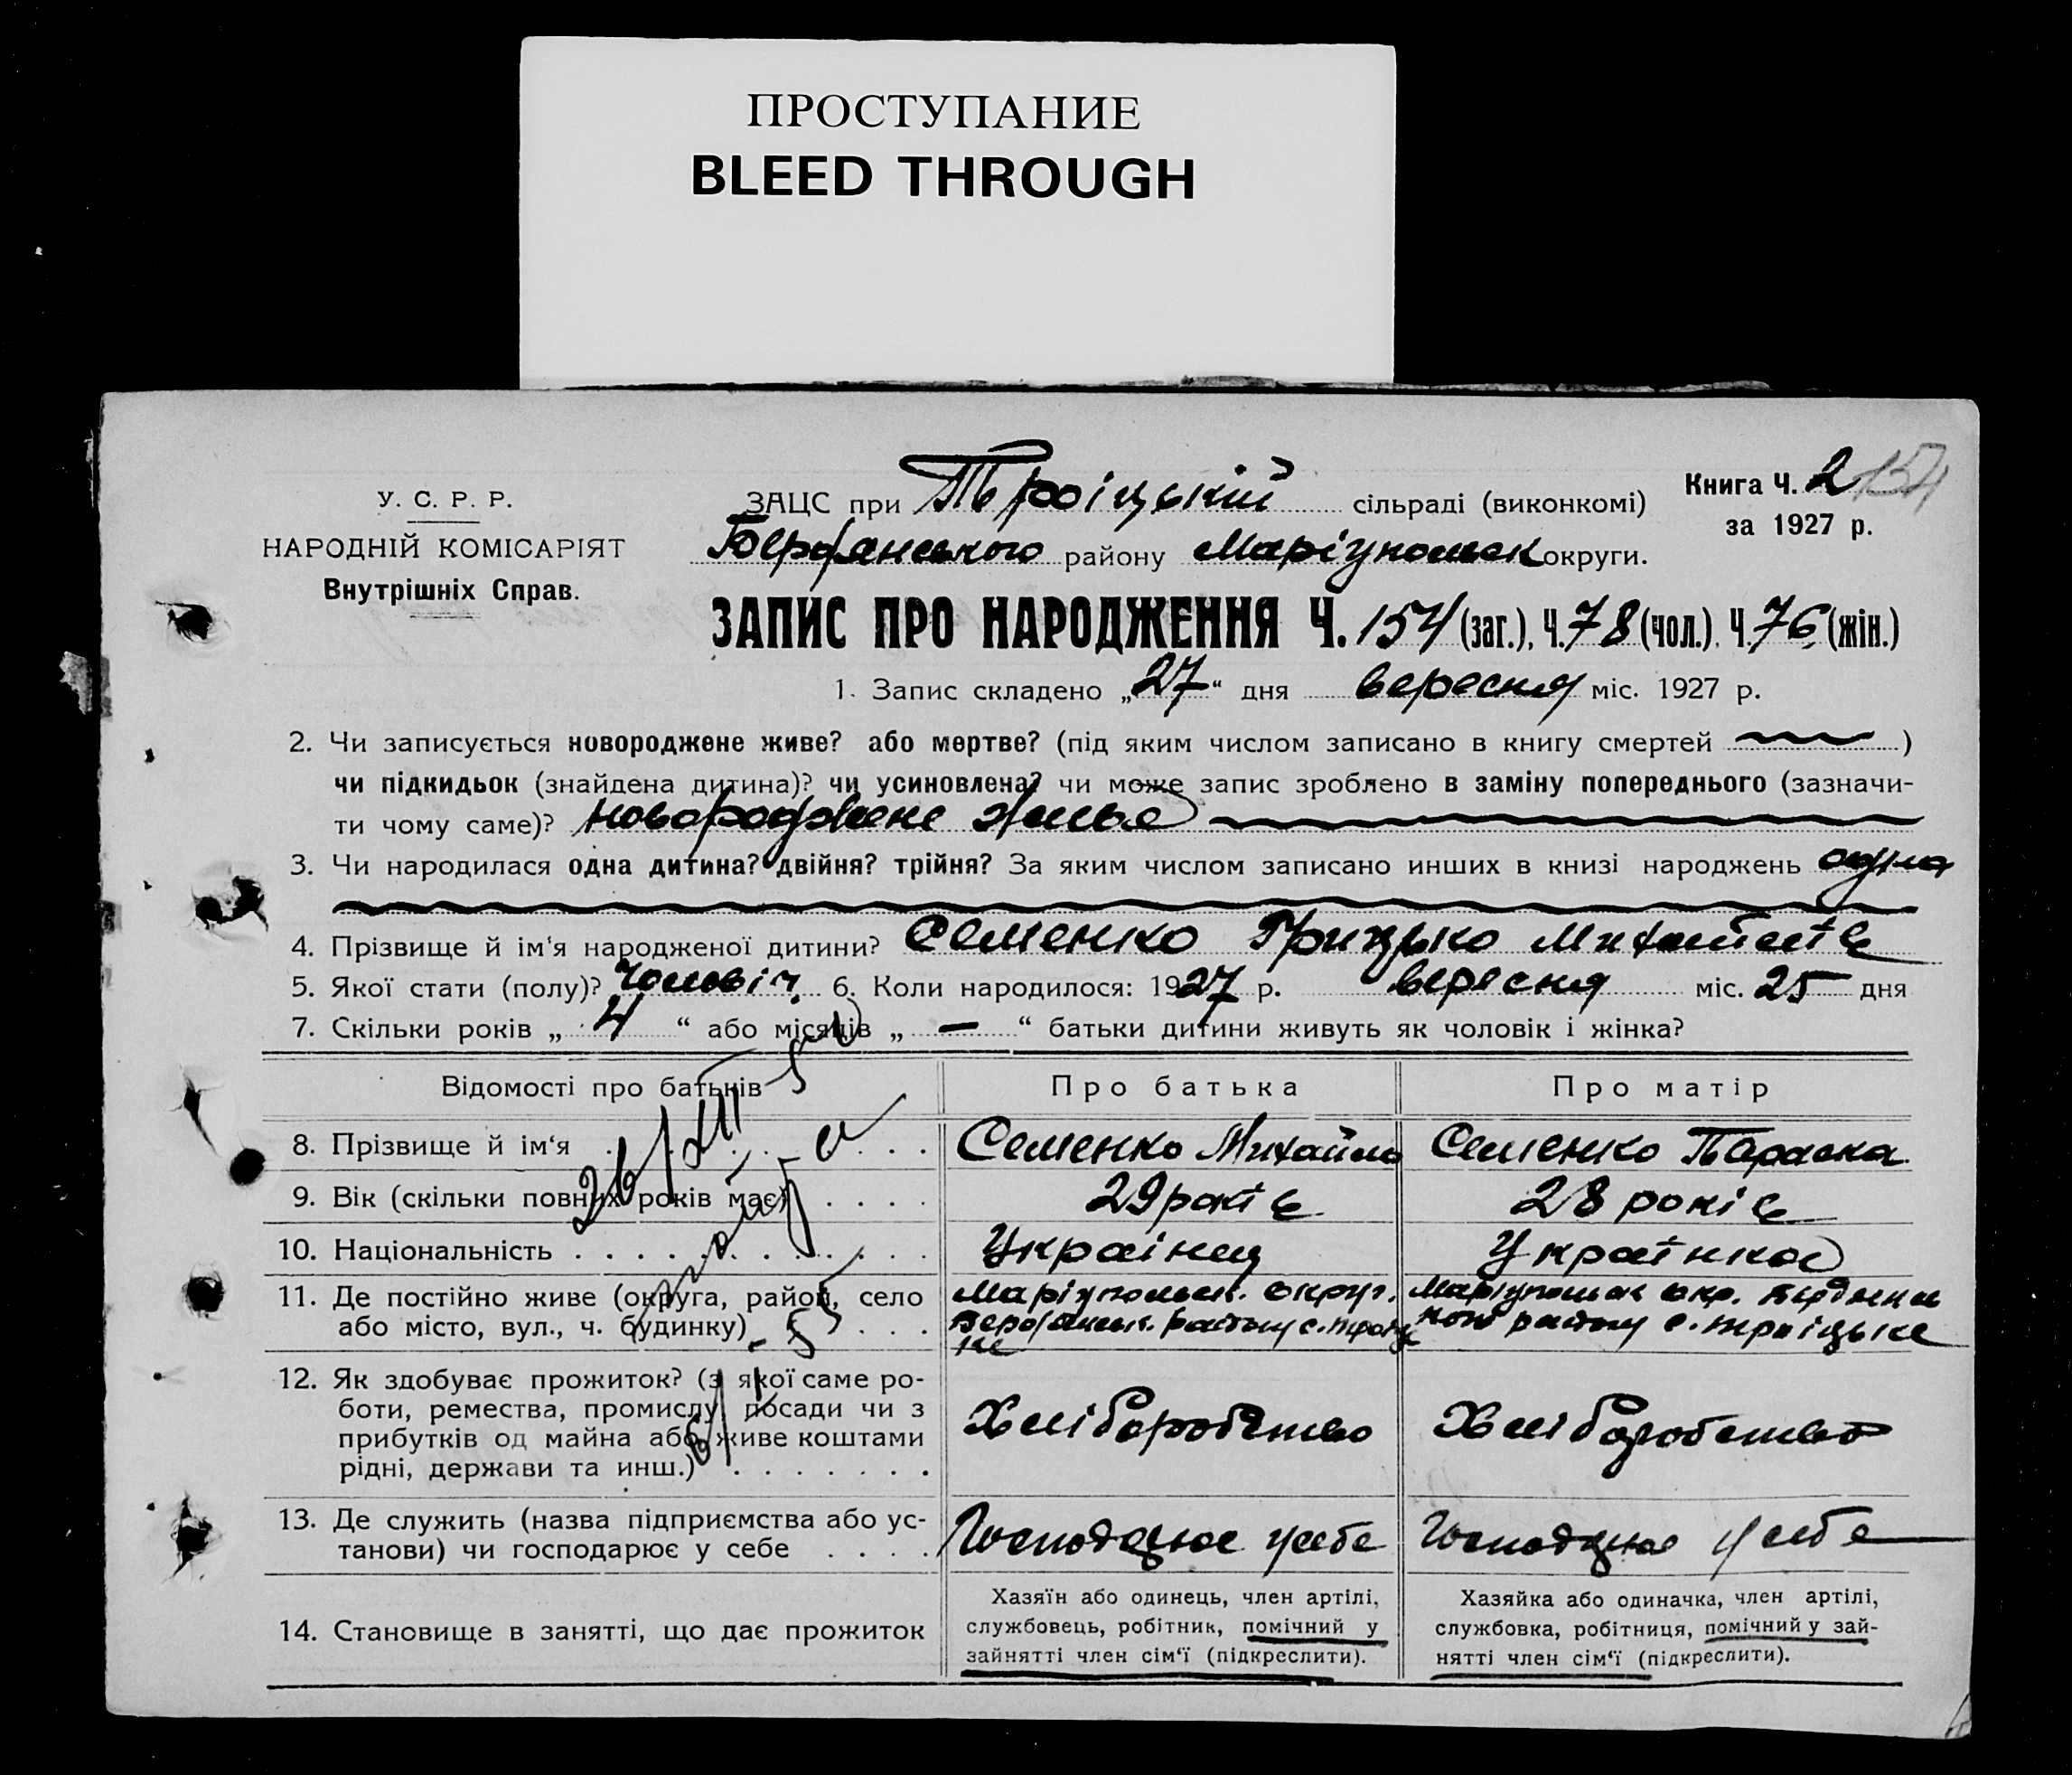 ПРОСТУПАНИЕ
BLEED THROUGH
У. С. Р. Р.
НАРОДНІЙ КОМІСАРІЯТ
Внутрішніх Справ.
ЗАЦС при Троіцькій сільраді (виконкомі)
Бердянського району Маріупольськ округи.
Книга Ч. 2 154
за 1927 р.
ЗАПИС ПРО НАРОДЖЕННЯ Ч. 154 (заг.), Ч. 78 (чол.), Ч. 76 (жін.)
1. Запис складено „27“ дня вересня міс. 1927 р.
2. Чи записується новороджене живе? або мертве? (під яким числом записано в книгу смертей )
чи підкидьок (знайдена дитина)? чи усиновлена? чи може запис зроблено в заміну попереднього (зазначи-
ти чому саме)? новороджене живе
3. Чи народилася одна дитина? двійня? трійня? За яким числом записано инших в книзі народжень одна
4. Прізвище й ім'я народженої дитини? Семенко Грицько Михайлів
5. Якої стати (полу)? Чоловіч. 6. Коли народилося: 1927 р. вересня міс. 25 дня
7. Скільки років „ 4 “ або місяців „ — “ батьки дитини живуть як чоловік і жінка?
Відомості про батьків Про батька Про матір
8. Прізвище й ім'я Семенко Михайло Семенко Параска
9. Вік (скільки повних років має) 29 років 28 років
10. Національність Украінец Украінка
11. Де постійно живе (округа, район, село
або місто, вул., ч. будинку)
Маріупольськ. округ.
Бердянськ. району с. Троіцьке
Маріупольськ окр. Бердянсь
кого району с. Троіцьке
12. Як здобуває прожиток? (з якої саме ро-
боти, ремества, промислу, посади чи з
прибутків од майна або живе коштами
рідні, держави та инш.)
Хліборобство Хліборобство
13. Де служить (назва підприємства або ус-
танови) чи господарює у себе
Господарює у себе Господарює у себе
14. Становище в занятті, що дає прожиток
Хазяїн або одинець, член артілі,
службовець, робітник, помічний у
зайнятті член сім'ї (підкреслити).
Хазяйка або одиначка, член артілі,
службовка, робітниця, помічний у зай-
нятті член сім'ї (підкреслити).